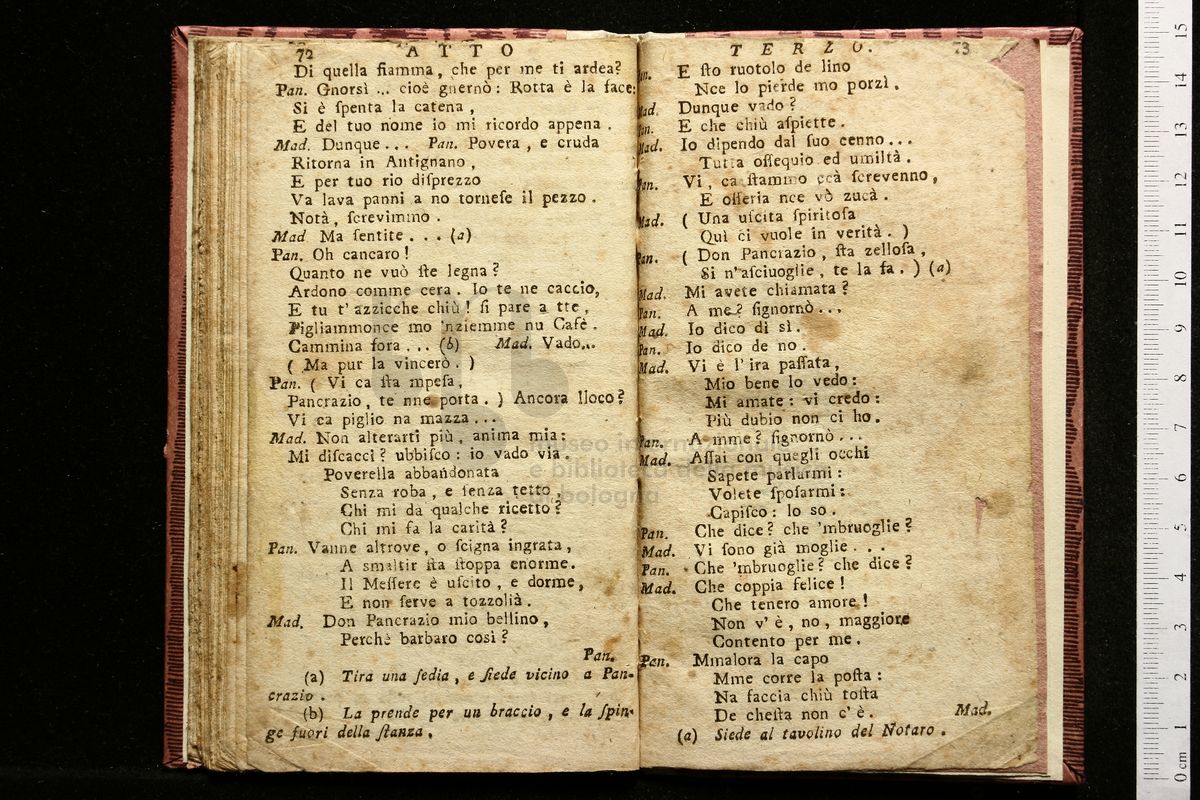 72 ATTO
Di quella fiamma, che per me ti ardea?
Pan. Gnorsì ... cioè gnernò: Rotta è la face:
Si è ſpenta la catena,
E del tuo nome io mi ricordo appena.
Mad. Dunque... Pan. Povera, e cruda
Ritorna in Antignano,
E per tuo rio diſprezzo
Va lava panni a no torneſe il pezzo.
Notà, ſcrevimmo.
Mad Ma ſentite... (a)
Pan. Oh cancaro!
Quanto ne vuò ſte legna?
Ardono comme cera. Io te ne caccio,
E tu t' azzicche chiù! ſi pare a tte,
Pigliammonce mo 'nziemme nu Cafè.
Cammina fora... (b) Mad. Vado...
( Ma pur la vincerò. )
Pan. ( Vi ca ſta mpeſa,
Pancrazio, te nne porta. ) Ancora lloco?
Vi ca piglio na mazza...
Mad. Non alterarti più, anima mia:
Mi diſcacci? ubbiſco: io vado via.
Poverella abbandonata
Senza roba, e ſenza tetto,
Chi mi da qualche ricetto?
Chi mi fa la carità?
Pan. Vanne altrove, o ſcigna ingrata,
A smaltir ſta ſtoppa enorme.
Il Meſſere è uſcito, e dorme,
E non ſerve a tozzolià.
Mad. Don Pancrazio mio bellino,
Perchè barbaro così?
Pan.
(a) Tira una ſedia, e ſiede vicino a Pan-
crazio.
(b) La prende per un braccio, e la ſpin-
ge fuori della ſtanza.
TERZO. 73
Pan. E ſto ruotolo de lino
Nce lo pierde mo porzì.
Mad. Dunque vado?
Pan. E che chiù aſpiette.
Mad. Io dipendo dal ſuo cenno...
Tutta oſſequio ed umiltà.
Pan. Vi, ca ſtammo ccà ſcrevenno,
E oſſeria nce vò zucà.
Mad. ( Una uſcita ſpiritoſa
Quì ci vuole in verità. )
Pan. ( Don Pancrazio, ſta zelloſa,
Si n'aſciuoglie, te la fa. ) (a)
Mad. Mi avete chiamata?
Pan. A me? ſignornò...
Mad. Io dico di sì.
Pan. Io dico de no.
Mad. Vi è l' ira paſſata,
Mio bene lo vedo:
Mi amate: vi credo:
Più dubio non ci ho.
Pan. A mme? ſignornò...
Mad. Aſſai con quegli occhi
Sapete parlarmi:
Volete ſpoſarmi:
Capiſco: lo so.
Pan. Che dice? che 'mbruoglie?
Mad. Vi ſono già moglie...
Pan. Che 'mbruoglie? che dice?
Mad. Che coppia felice!
Che tenero amore!
Non v' è, no, maggiore
Contento per me.
Pan. Mmalora la capo
Mme corre la poſta:
Na faccia chiù toſta
De cheſta non c' è.
Mad.
(a) Siede al tavolino del Notaro.